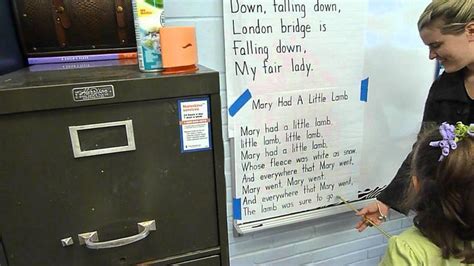 Down, falling down,
London bridge is
falling down,
My fair lady.
Mary Had A Little Lamb
Mary had a little lamb,
little lamb, little lamb,
Mary had a little lamb,
Whose fleece was white as snow.
And everywhere that Mary went,
Mary went, Mary went,
And everywhere that Mary went,
The lamb was sure to go.